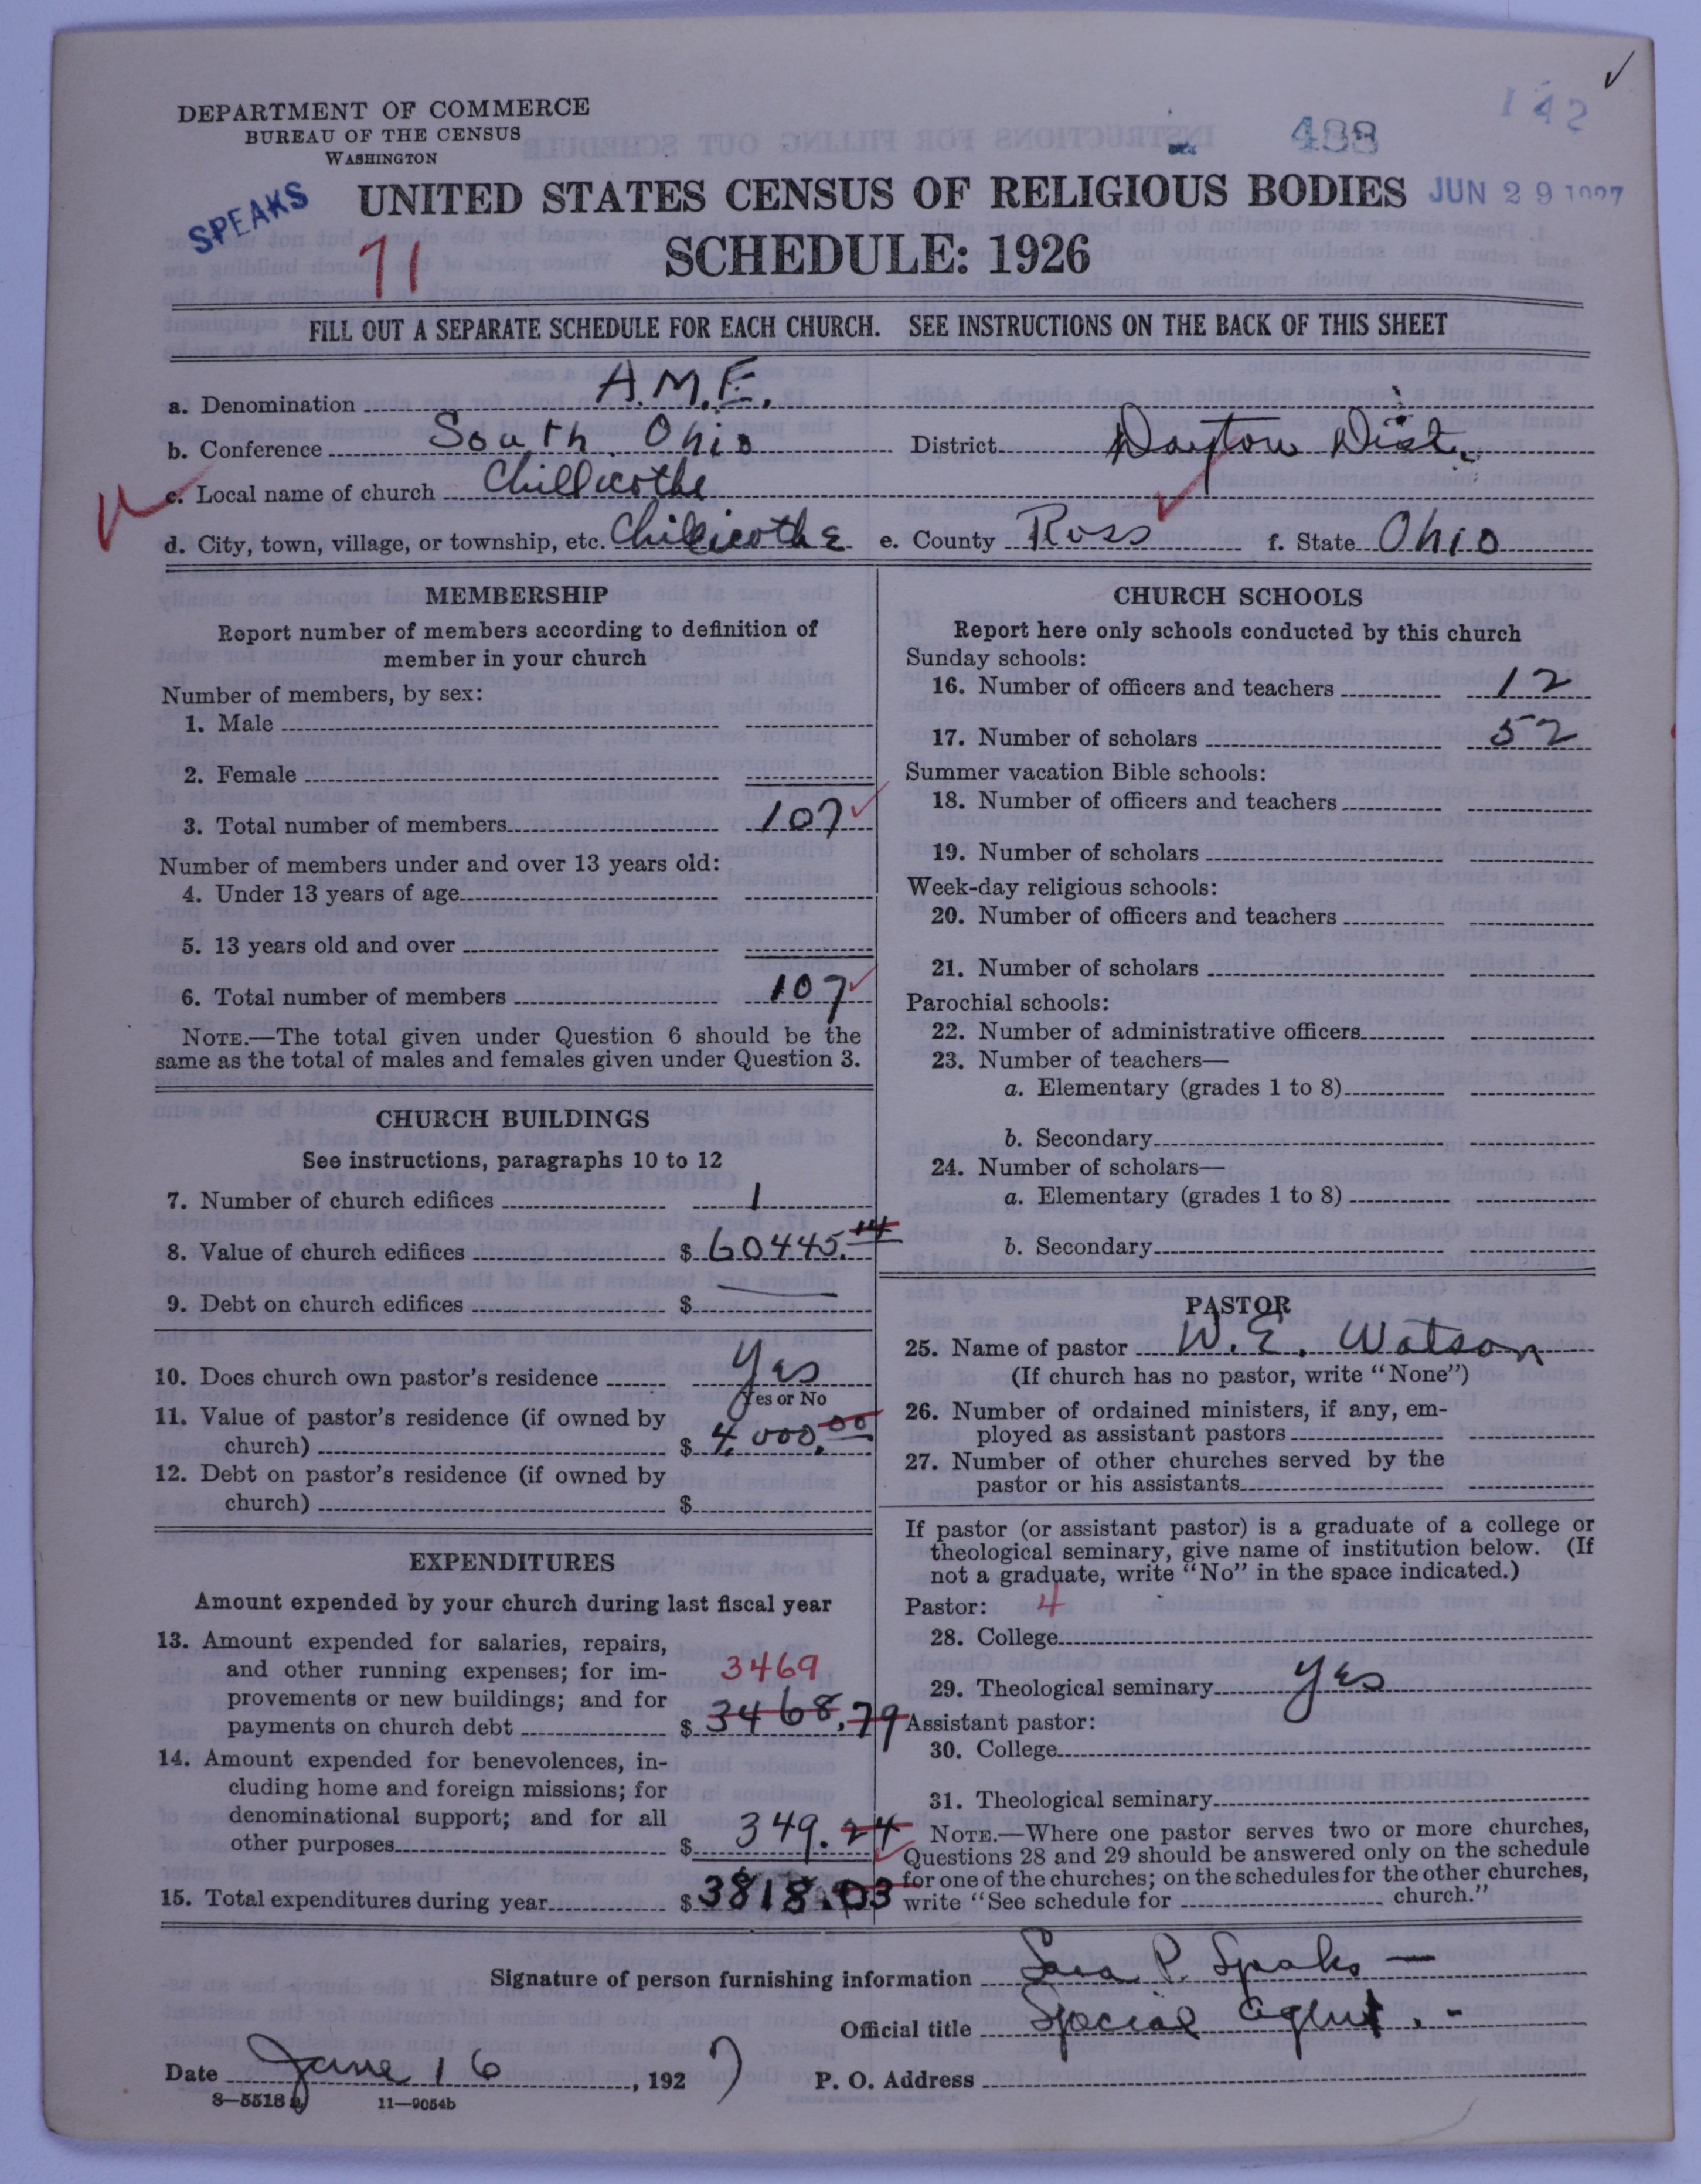 DEPARTMENT OF COMMERCE
BUREAU OF THE CENSUS
WASHINGTON
142
488
SPEAKS
UNITED STATES CENSUS OF RELIGIOUS BODIES
JUN 29 1927
71
SCHEDULE: 1926
FILL OUT A SEPARATE SCHEDULE FOR EACH CHURCH. SEE INSTRUCTIONS ON THE BACK OF THIS SHEET
a. Denomination A.M.E.
b. Conference South Ohio District Dayton Dist.
c. Local name of church Chillicothe
d. City, town, village, or township, etc. Chillicothe e. County Ross f. State Ohio
MEMBERSHIP
Report number of members according to definition of
member in your church
Number of members, by sex:
1. Male
2. Female
3. Total number of members 107
Number of members under and over 13 years old:
4. Under 13 years of age
5. 13 years old and over
6. Total number of members 107
NOTE.—The total given under Question 6 should be the
same as the total of males and females given under Question 3.
CHURCH BUILDINGS
See instructions, paragraphs 10 to 12
7. Number of church edifices 1
8. Value of church edifices $ 60445.14
9. Debt on church edifices $
10. Does church own pastor's residence Yes
Yes or No
11. Value of pastor's residence (if owned by
church) $ 4,000.00
12. Debt on pastor's residence (if owned by
church) $
EXPENDITURES
Amount expended by your church during last fiscal year
13. Amount expended for salaries, repairs,
and other running expenses; for im- 3469
provements or new buildings; and for
payments on church debt $ 3468.79
14. Amount expended for benevolences, in-
cluding home and foreign missions; for
denominational support; and for all
other purposes $ 349.24
15. Total expenditures during year $ 3818.03
CHURCH SCHOOLS
Report here only schools conducted by this church
Sunday schools:
16. Number of officers and teachers 12
17. Number of scholars 52
Summer vacation Bible schools:
18. Number of officers and teachers
19. Number of scholars
Week-day religious schools:
20. Number of officers and teachers
21. Number of scholars
Parochial schools:
22. Number of administrative officers
23. Number of teachers—
a. Elementary (grades 1 to 8)
b. Secondary
24. Number of scholars—
a. Elementary (grades 1 to 8)
b. Secondary
PASTOR
25. Name of pastor W. E. Watson
(If church has no pastor, write "None")
26. Number of ordained ministers, if any, em-
ployed as assistant pastors
27. Number of other churches served by the
pastor or his assistants
If pastor (or assistant pastor) is a graduate of a college or
theological seminary, give name of institution below. (If
not a graduate, write "No" in the space indicated.)
Pastor: 4
28. College
29. Theological seminary Yes
Assistant pastor:
30. College
31. Theological seminary
NOTE.—Where one pastor serves two or more churches,
Questions 28 and 29 should be answered only on the schedule
for one of the churches; on the schedules for the other churches,
write "See schedule for church."
Signature of person furnishing information Sara P. Speaks —
Official title Special Agent. -
Date June 16, 1927 P. O. Address
8—5518a 11—9054b